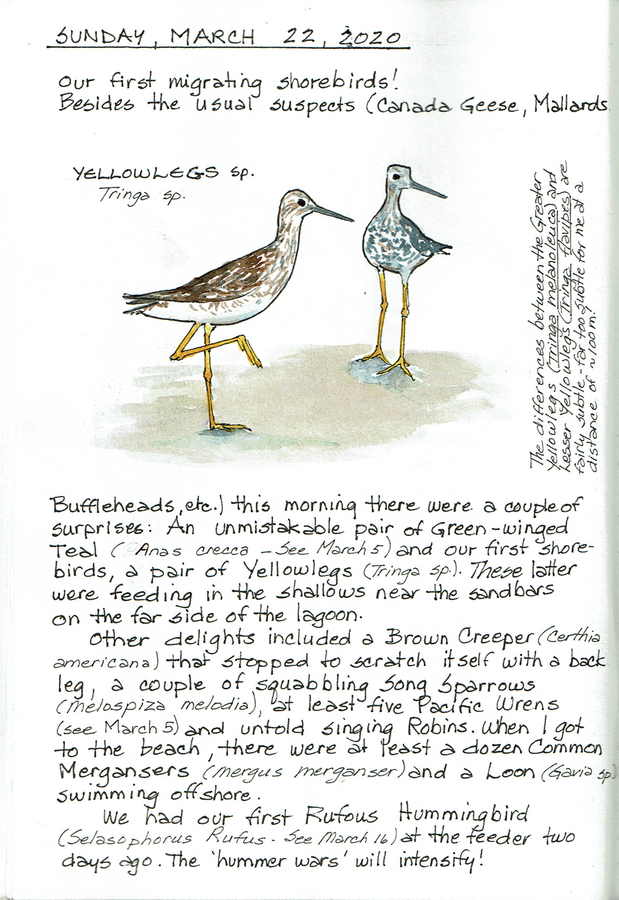 SUNDAY, MARCH 22, 2020
Our first migrating shorebirds!
Besides the usual suspects (Canada Geese, Mallards
YELLOWLEGS sp.
Tringa sp.
The differences between the Greater
Yellowlegs (Tringa melanoleuca) and
Lesser Yellowlegs (Tringa flavipes) are
fairly subtle - far too subtle for me at a
distance of ~100 m!
Buffleheads, etc.) this morning there were a couple of
surprises: An unmistakable pair of Green-winged
Teal (Anas crecca - See March 5) and our first shore-
birds, a pair of Yellowlegs (Tringa sp.). These latter
were feeding in the shallows near the sandbars
on the far side of the lagoon.
Other delights included a Brown Creeper (Certhia
americana) that stopped to scratch itself with a back
leg, a couple of squabbling Song Sparrows
(Melospiza melodia), at least five Pacific Wrens
(see March 5) and untold singing Robins. When I got
to the beach, there were at least a dozen Common
Mergansers (Mergus merganser) and a Loon (Gavia sp)
swimming offshore.
We had our first Rufous Hummingbird
(Selasophorus Rufus - See March 16) at the feeder two
days ago. The 'hummer wars' will intensify!